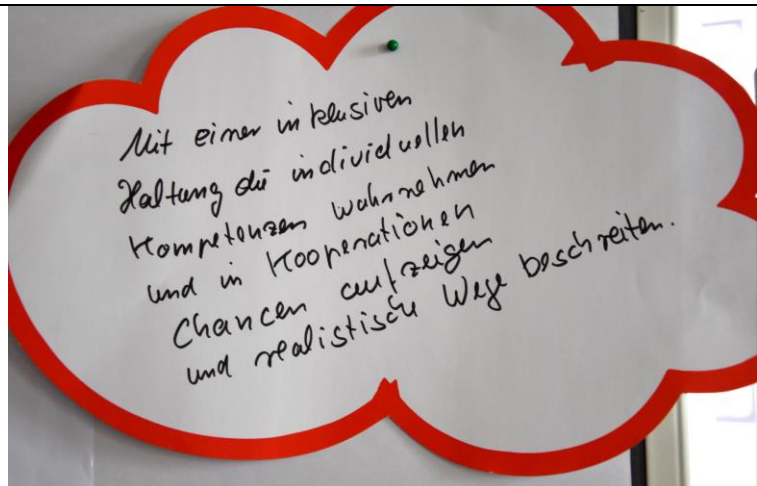 Mit einer inklusiven
Haltung die individuellen
Kompetenzen wahrnehmen
und in Kooperationen
Chancen aufzeigen
und realistische Wege beschreiten.